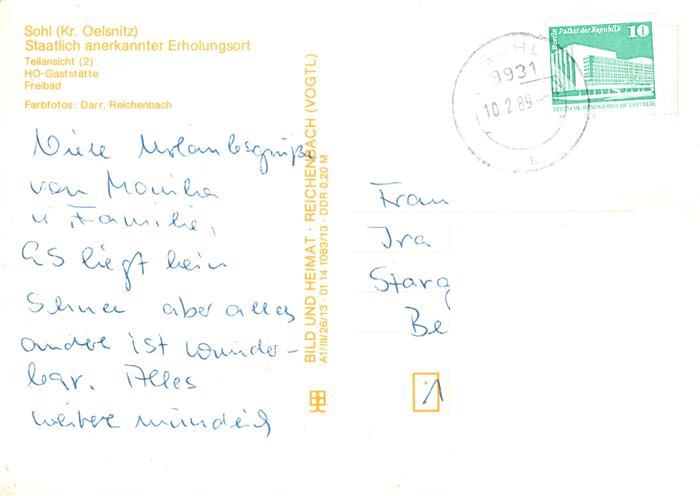 Sohl (Kr. Oelsnitz)
Staatlich anerkannter Erholungsort
Teilansicht (2)
HO-Gaststätte
Freibad
Farbfotos: Darr, Reichenbach
Viele Urlaubsgrüße
von Monika
u. Familie,
Es liegt kein
Schnee aber alles
andere ist wunder-
bar. Alles
weitere mündlich
BILD UND HEIMAT · REICHENBACH (VOGTL)
A1/III/26/13 · 01 14 1083/13 · DDR 0,20 M
SOHL
9931
10.2.89
a
Berlin Palast der Republik 10
DEUTSCHE DEMOKRATISCHE REPUBLIK
Frau
Ira
Starg
Be
1